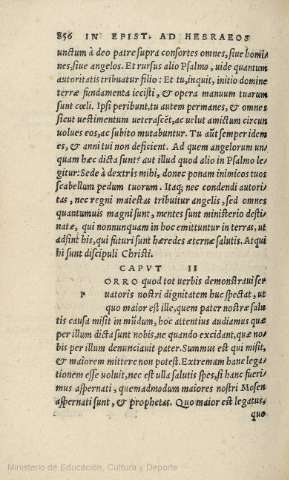 856 IN EPIST. AD HEBRAEOS
unctum à deo patre supra consortes omnes, siue homi⸗
nes, siue angelos. Et rursus alio Psalmo, uide quantum
autoritatis tribuatur filio: Et tu, inquit, initio domine
terræ fundamenta iecisti, & opera manuum tuarum
sunt cœli. Ipsi peribunt, tu autem permanes, & omnes
sicut uestimentum ueterascẽt, ac uelut amictum circum
uolues eos, ac subito mutabuntur. Tu aũt semper idem
es, & anni tui non deficient. Ad quem angelorum un⸗
quam hæc dicta sunt? aut illud quod alio in Psalmo le⸗
gitur: Sede à dextris mihi, donec ponam inimicos tuos
scabellum pedum tuorum. Itaq; nec condendi autori⸗
tas, nec regni maiestas tribuitur angelis, sed omnes
quantumuis magni sunt, mentes sunt ministerio desti⸗
natæ, qui nonnunquam in hoc emittuntur in terras, ut
adsint his, qui futuri sunt hæredes æternæ salutis. Atqui
hi sunt discipuli Christi.
CAPVT II
PORRO quod tot uerbis demonstraui ser
uatoris nostri dignitatem huc spectat, ut
quo maior est ille, quem pater nostræ salu
tis causa misit in mũdum, hoc attentius audiamus quæ
per illum dicta sunt nobis, ne quando excidant, quæ no⸗
bis per illum denunciauit pater. Summus est qui misit,
& maiorem mittere non potest. Extremam hanc lega⸗
tionem esse uoluit, nec est ulla salutis spes, si hanc fueri⸗
mus aspernati, quemadmodum maiores nostri Mosen
aspernati sunt, & prophetas. Quo maior est legatus,
quo
Ministerio de Educación, Cultura y Deporte